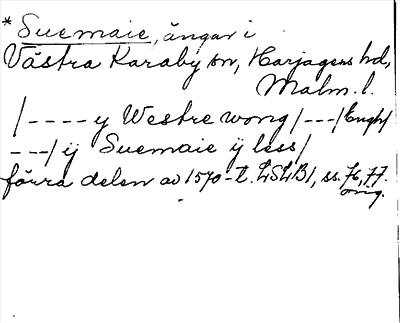 * Suemaie, ängar i
Västra Karaby sn, Harjagers hd,
Malm. l.
/---- y Westre wong /---/ Engh/
---/ ij Suemaie ij less/
förra delen av 1570-t. LSLB1, ss. 76, 77.
orig.